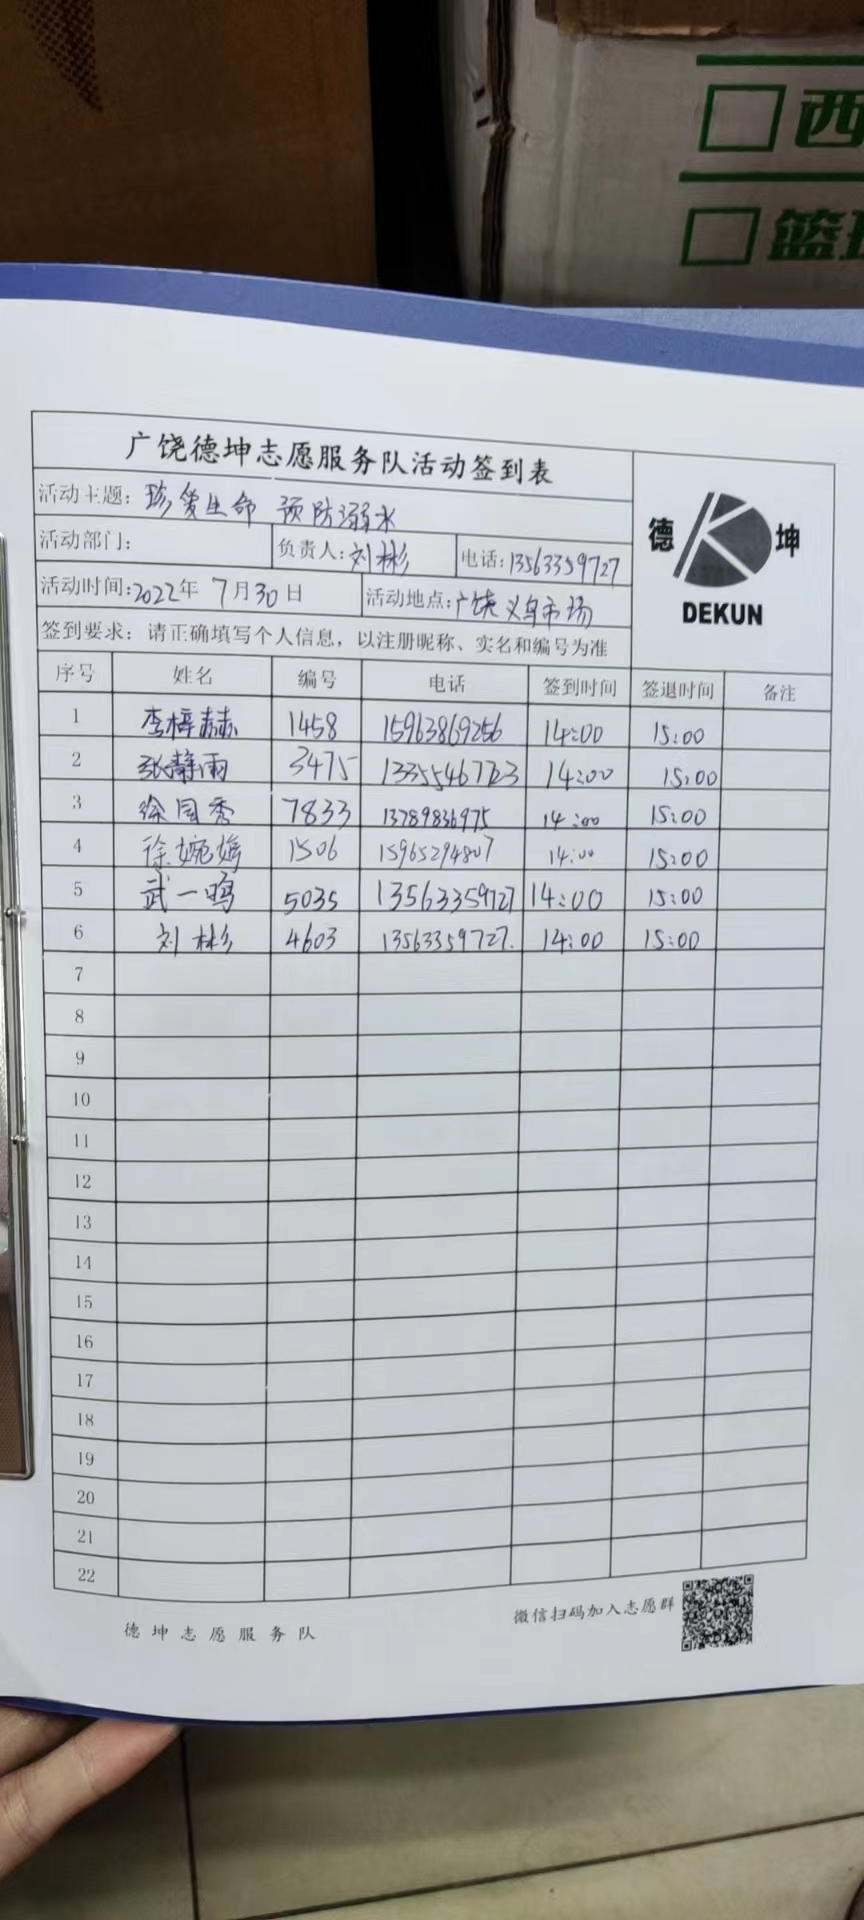 西
篮球
广饶德坤志愿服务队活动签到表
活动主题: 珍爱生命 预防溺水
活动部门: 负责人: 刘彬 电话: 13563359727
活动时间: 2022年 7月30日 活动地点: 广饶义乌市场
德 坤
DEKUN
签到要求: 请正确填写个人信息, 以注册昵称、实名和编号为准
序号 姓名 编号 电话 签到时间 签退时间 备注
1 李梓赫 1458 15963869256 14:00 15:00
2 张静雨 3475 13355467723 14:00 15:00
3 徐国秀 7833 13789836975 14:00 15:00
4 徐婉嫣 1506 15965294807 14:00 15:00
5 武一鸣 5035 13563359727 14:00 15:00
6 刘彬 4603 13563359727. 14:00 15:00
7
8
9
10
11
12
13
14
15
16
17
18
19
20
21
22
微信扫码加入志愿群
德坤志愿服务队